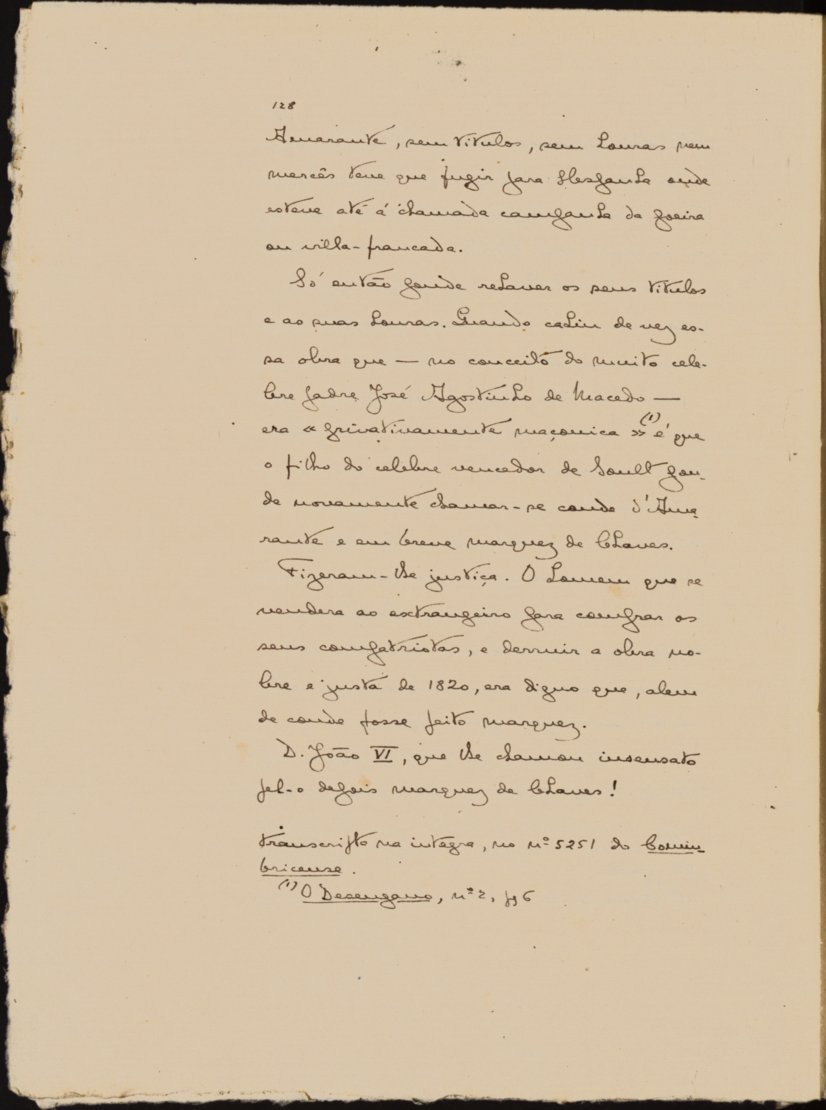 128
Amarante, sem titulos, sem honras nem
mercês teve que fugir para Hespanha onde
esteve até á chamada campanha da poeira
ou villa-francada.
Só então poude rehaver os seus titulos
e as suas honras. Quando cahiu de vez es-
sa obra que — no conceito do muito cele-
bre padre José Agostinho de Macedo —
era « privativamente maçonica » (1) é que
o filho do celebre vencedor de Soult pou-
de novamente chamar-se conde d'Ama
rante e em breve marquez de Chaves.
Fizeram-lhe justiça. O homem que se
vendera ao extrangeiro para comprar os
seus compatriotas, e derruir a obra no-
bre e justa de 1820, era digno que, alem
de conde fosse feito marquez.
D. João VI, que lhe chamou insensato
fel-o depois marquez de Chaves!
transcripto na integra, no nº 5251 do Conim
bricense.
(1) O Desengano, nº 2, pg 6